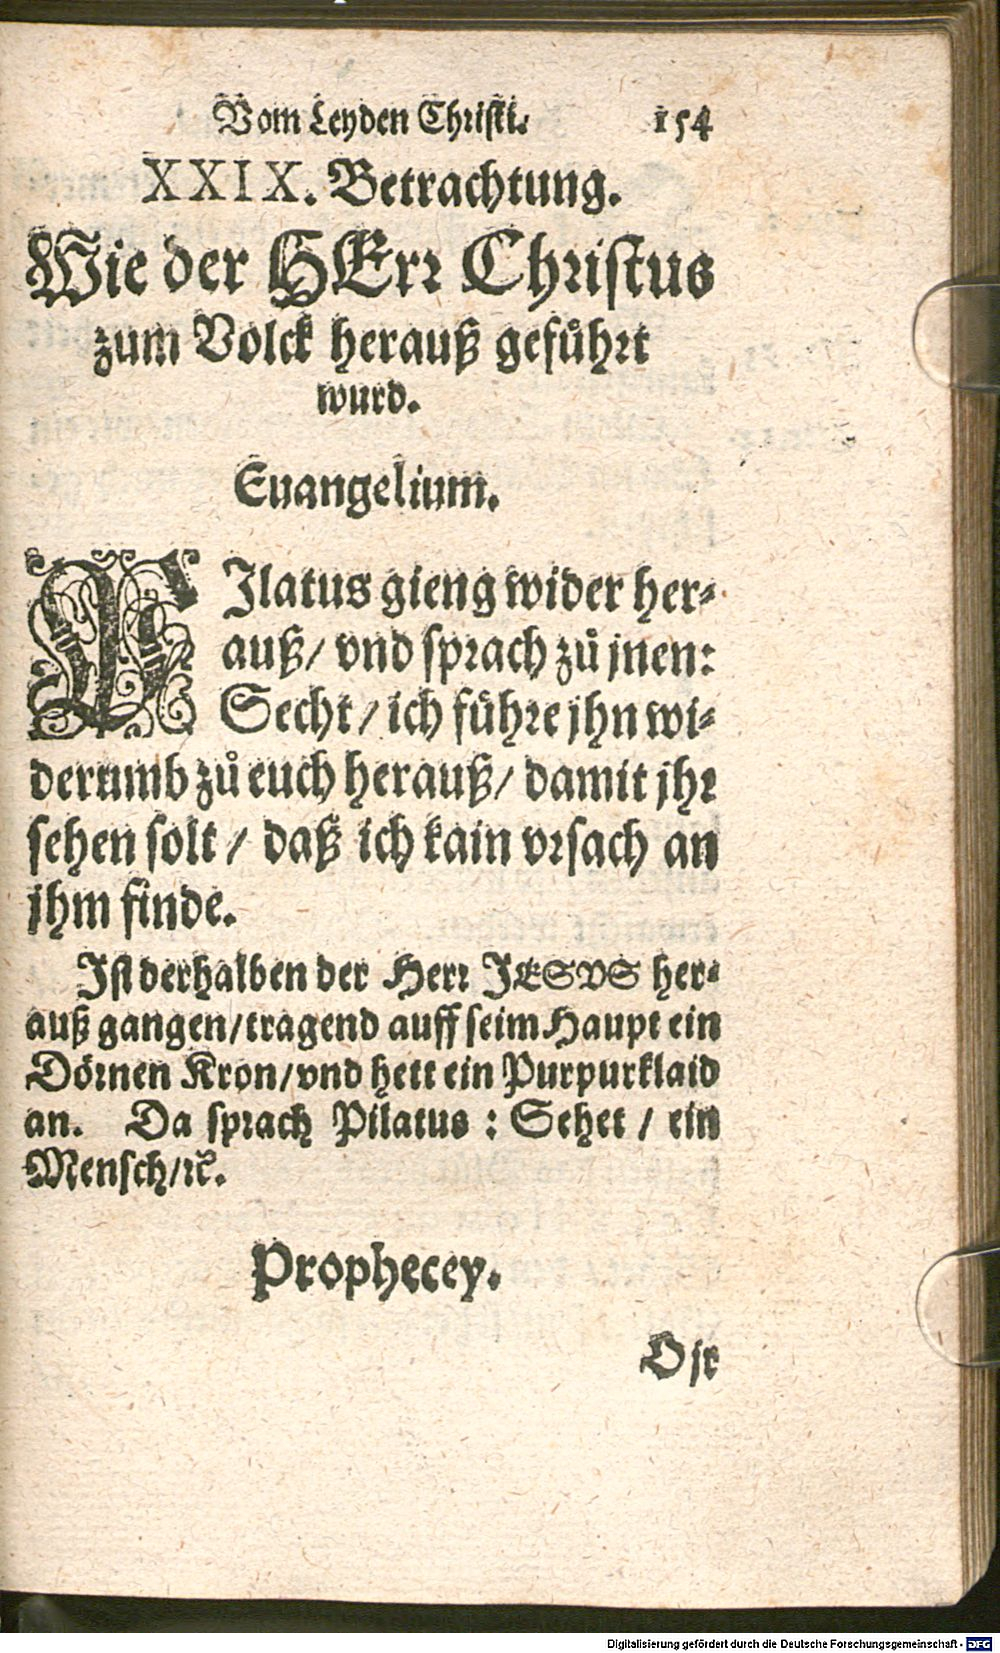 Vom Leyden Christi. 154
XXIX. Betrachtung.
Wie der HErr Christus
zum Volck herauß gefůhrt
wurd.
Euangelium.
PIlatus gieng wider her-
auß/ vnd sprach zů jnen:
Secht / ich fůhre jhn wi-
derumb zů euch herauß/ damit jhr
sehen solt / daß ich kain vrsach an
jhm finde.
Ist derhalben der Herr JESVS her-
auß gangen/tragend auff seim Haupt ein
Dörnen Kron/vnd hett ein Purpurklaid
an. Da sprach Pilatus : Sehet / ein
Mensch/ꝛc.
Prophecey.
O jr
Digitalisierung gefördert durch die Deutsche Forschungsgemeinschaft - DFG